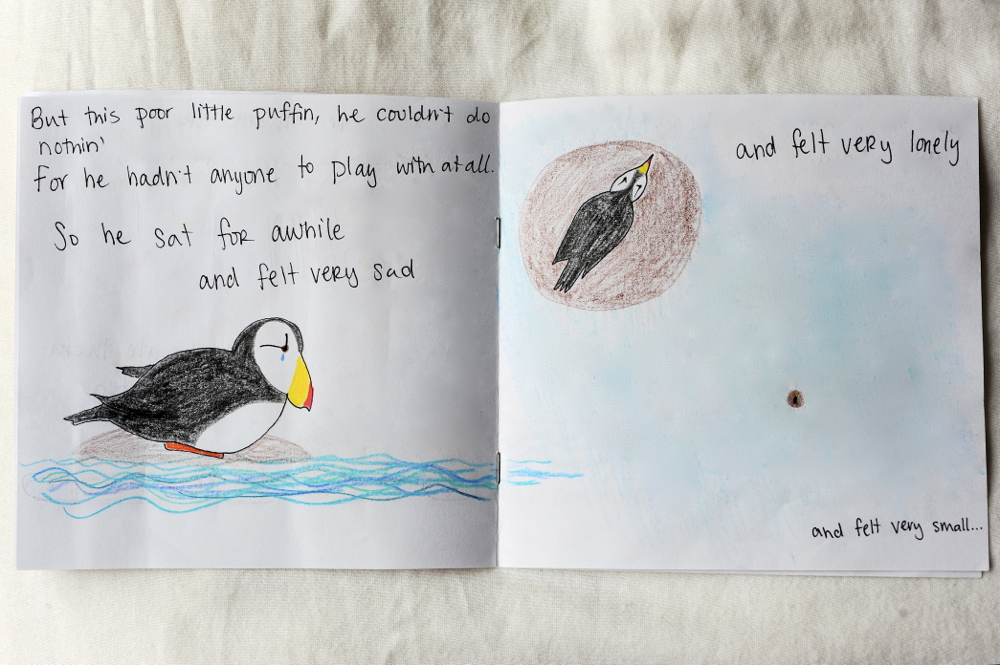 But this poor little puffin, he couldn't do
nothin'
for he hadn't anyone to play with at all.
So he sat for awhile
and felt very sad
and felt very lonely
and felt very small...